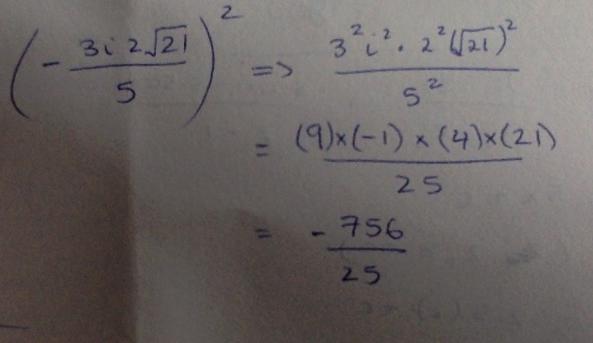 (- 3i 2√21 / 5)² => 3² i² · 2² (√21)² / 5²
= (9)×(-1) × (4)×(21) / 25
= - 756 / 25